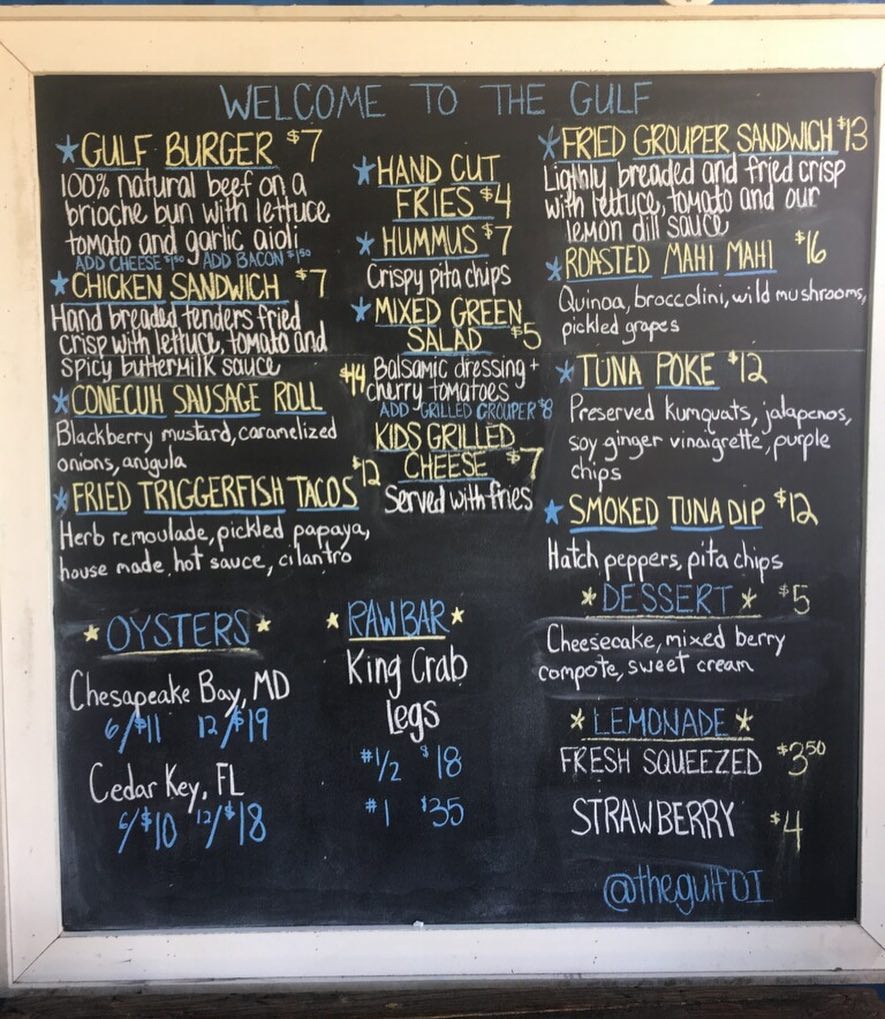 WELCOME TO THE GULF
GULF BURGER $7
100% natural beef on a
brioche bun with lettuce
tomato and garlic aioli
ADD CHEESE $1.50 ADD BACON $1.50
CHICKEN SANDWICH $7
Hand breaded tenders fried
crisp with lettuce, tomato and
spicy buttermilk sauce
CONECUH SAUSAGE ROLL $14
Blackberry mustard, caramelized
onions, arugula
FRIED TRIGGERFISH TACOS $12
Herb remoulade, pickled papaya,
house made hot sauce, cilantro
HAND CUT
FRIES $4
HUMMUS $7
Crispy pita chips
MIXED GREEN
SALAD $5
Balsamic dressing +
cherry tomatoes
ADD GRILLED GROUPER $8
KIDS GRILLED
CHEESE $7
Served with fries
FRIED GROUPER SANDWICH $13
Lightly breaded and fried crisp
with lettuce, tomato and our
lemon dill sauce
ROASTED MAHI MAHI $16
Quinoa, broccolini, wild mushrooms,
pickled grapes
TUNA POKE $12
Preserved kumquats, jalapenos,
soy ginger vinaigrette, purple
chips
SMOKED TUNA DIP $12
Hatch peppers, pita chips
DESSERT $5
Cheesecake, mixed berry
compote, sweet cream
OYSTERS
Chesapeake Bay, MD
6/$11 12/$19
Cedar Key, FL
6/$10 12/$18
RAW BAR
King Crab
Legs
#1/2 $18
#1 $35
LEMONADE
FRESH SQUEEZED $3.50
STRAWBERRY $4
@thegulfOI